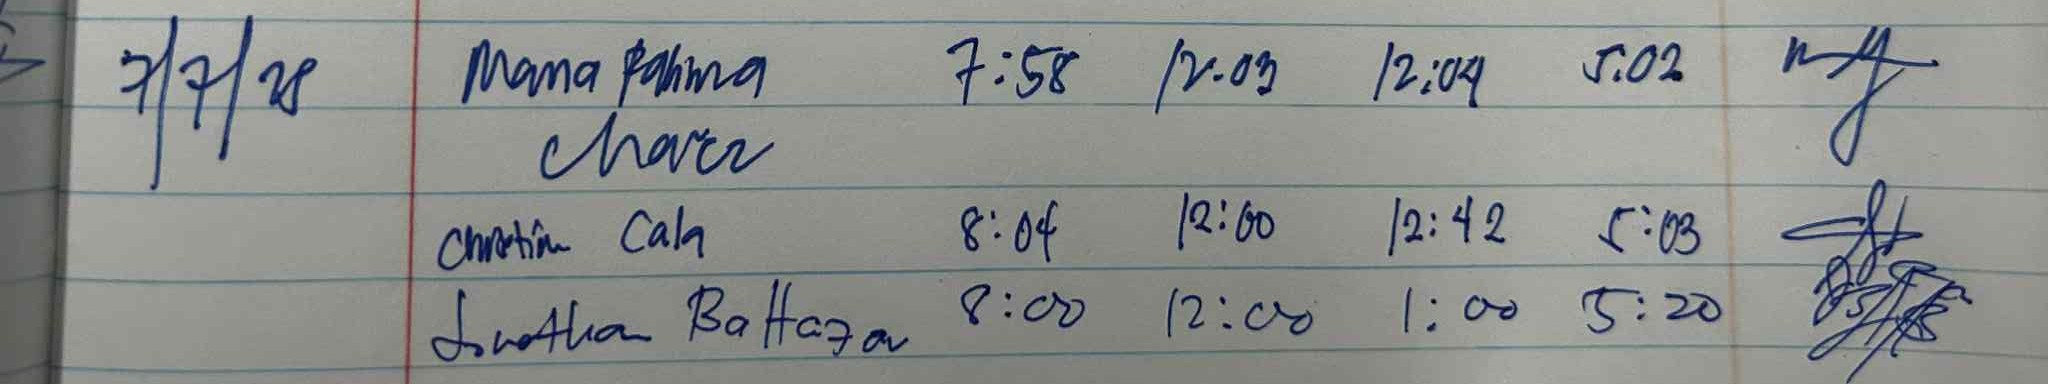 7/7/28 Mana Pahima 7:58 12:03 12:04 5:02
Chavez
Christian Cala 8:04 12:00 12:42 5:03
Jonathan Baltazar 8:00 12:00 1:00 5:20